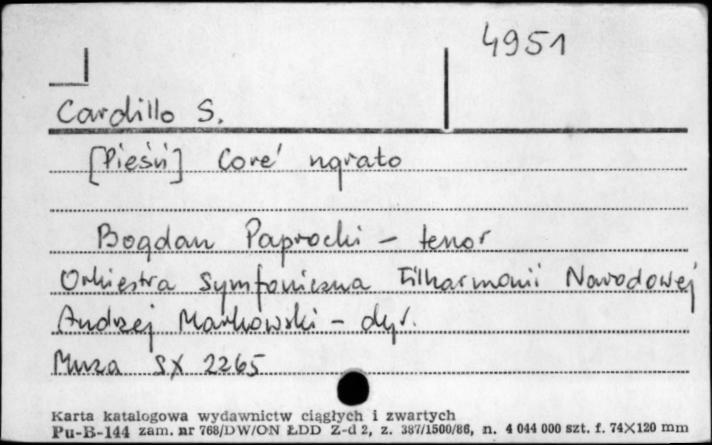 4951
Cardillo S.
[Pieśń] Core' ngrato
Bogdan Paprocki – tenor
Orkiestra Symfoniczna Filharmonii Narodowej
Andrzej Markowski – dyr.
Muza SX 2265
Karta katalogowa wydawnictw ciągłych i zwartych
Pu-B-144 zam. nr 768/DW/ON ŁDD Z-d 2, z. 387/1500/86, n. 4 044 000 szt. f. 74×120 mm